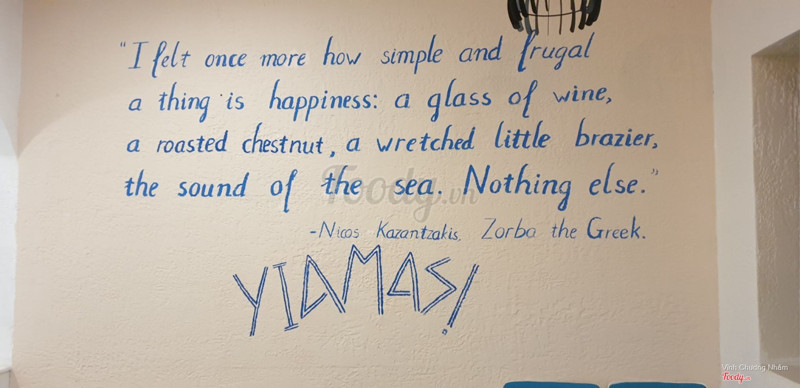 "I felt once more how simple and frugal
a thing is happiness: a glass of wine,
a roasted chestnut, a wretched little brazier,
the sound of the sea. Nothing else."
-Nicos Kazantzakis, Zorba the Greek.
YIAMAS!
Foody.vn
Vinh Chương Nhâm
Foody.vn